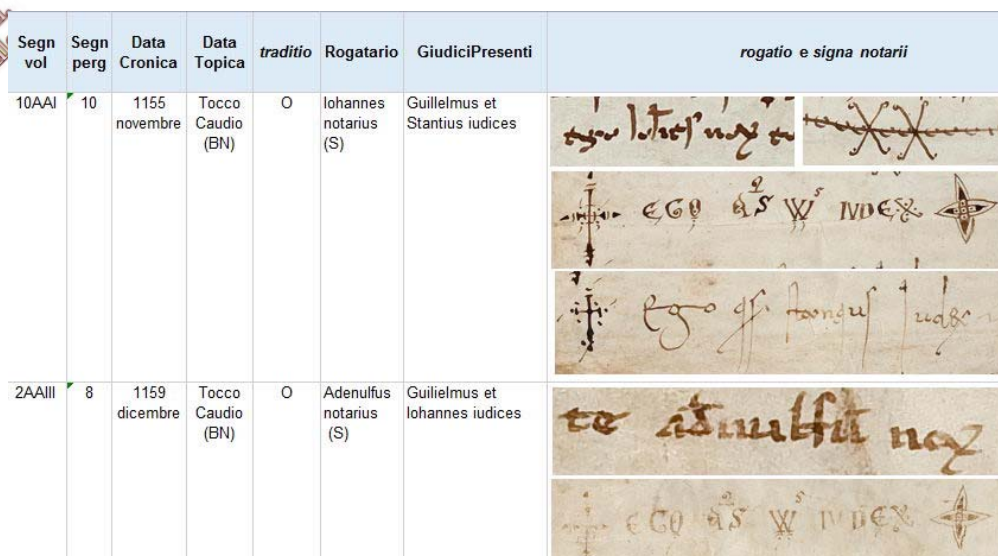 Segn vol Segn perg Data Cronica Data Topica traditio Rogatario GiudiciPresenti rogatio e signa notarii
10AAI 10 1155 novembre Tocco Caudio (BN) O Iohannes notarius (S) Guillelmus et Stantius iudices
EGO IVDEX
Ego
2AAIII 8 1159 dicembre Tocco Caudio (BN) O Adenulfus notarius (S) Guilielmus et Iohannes iudices
EGO IVDEX